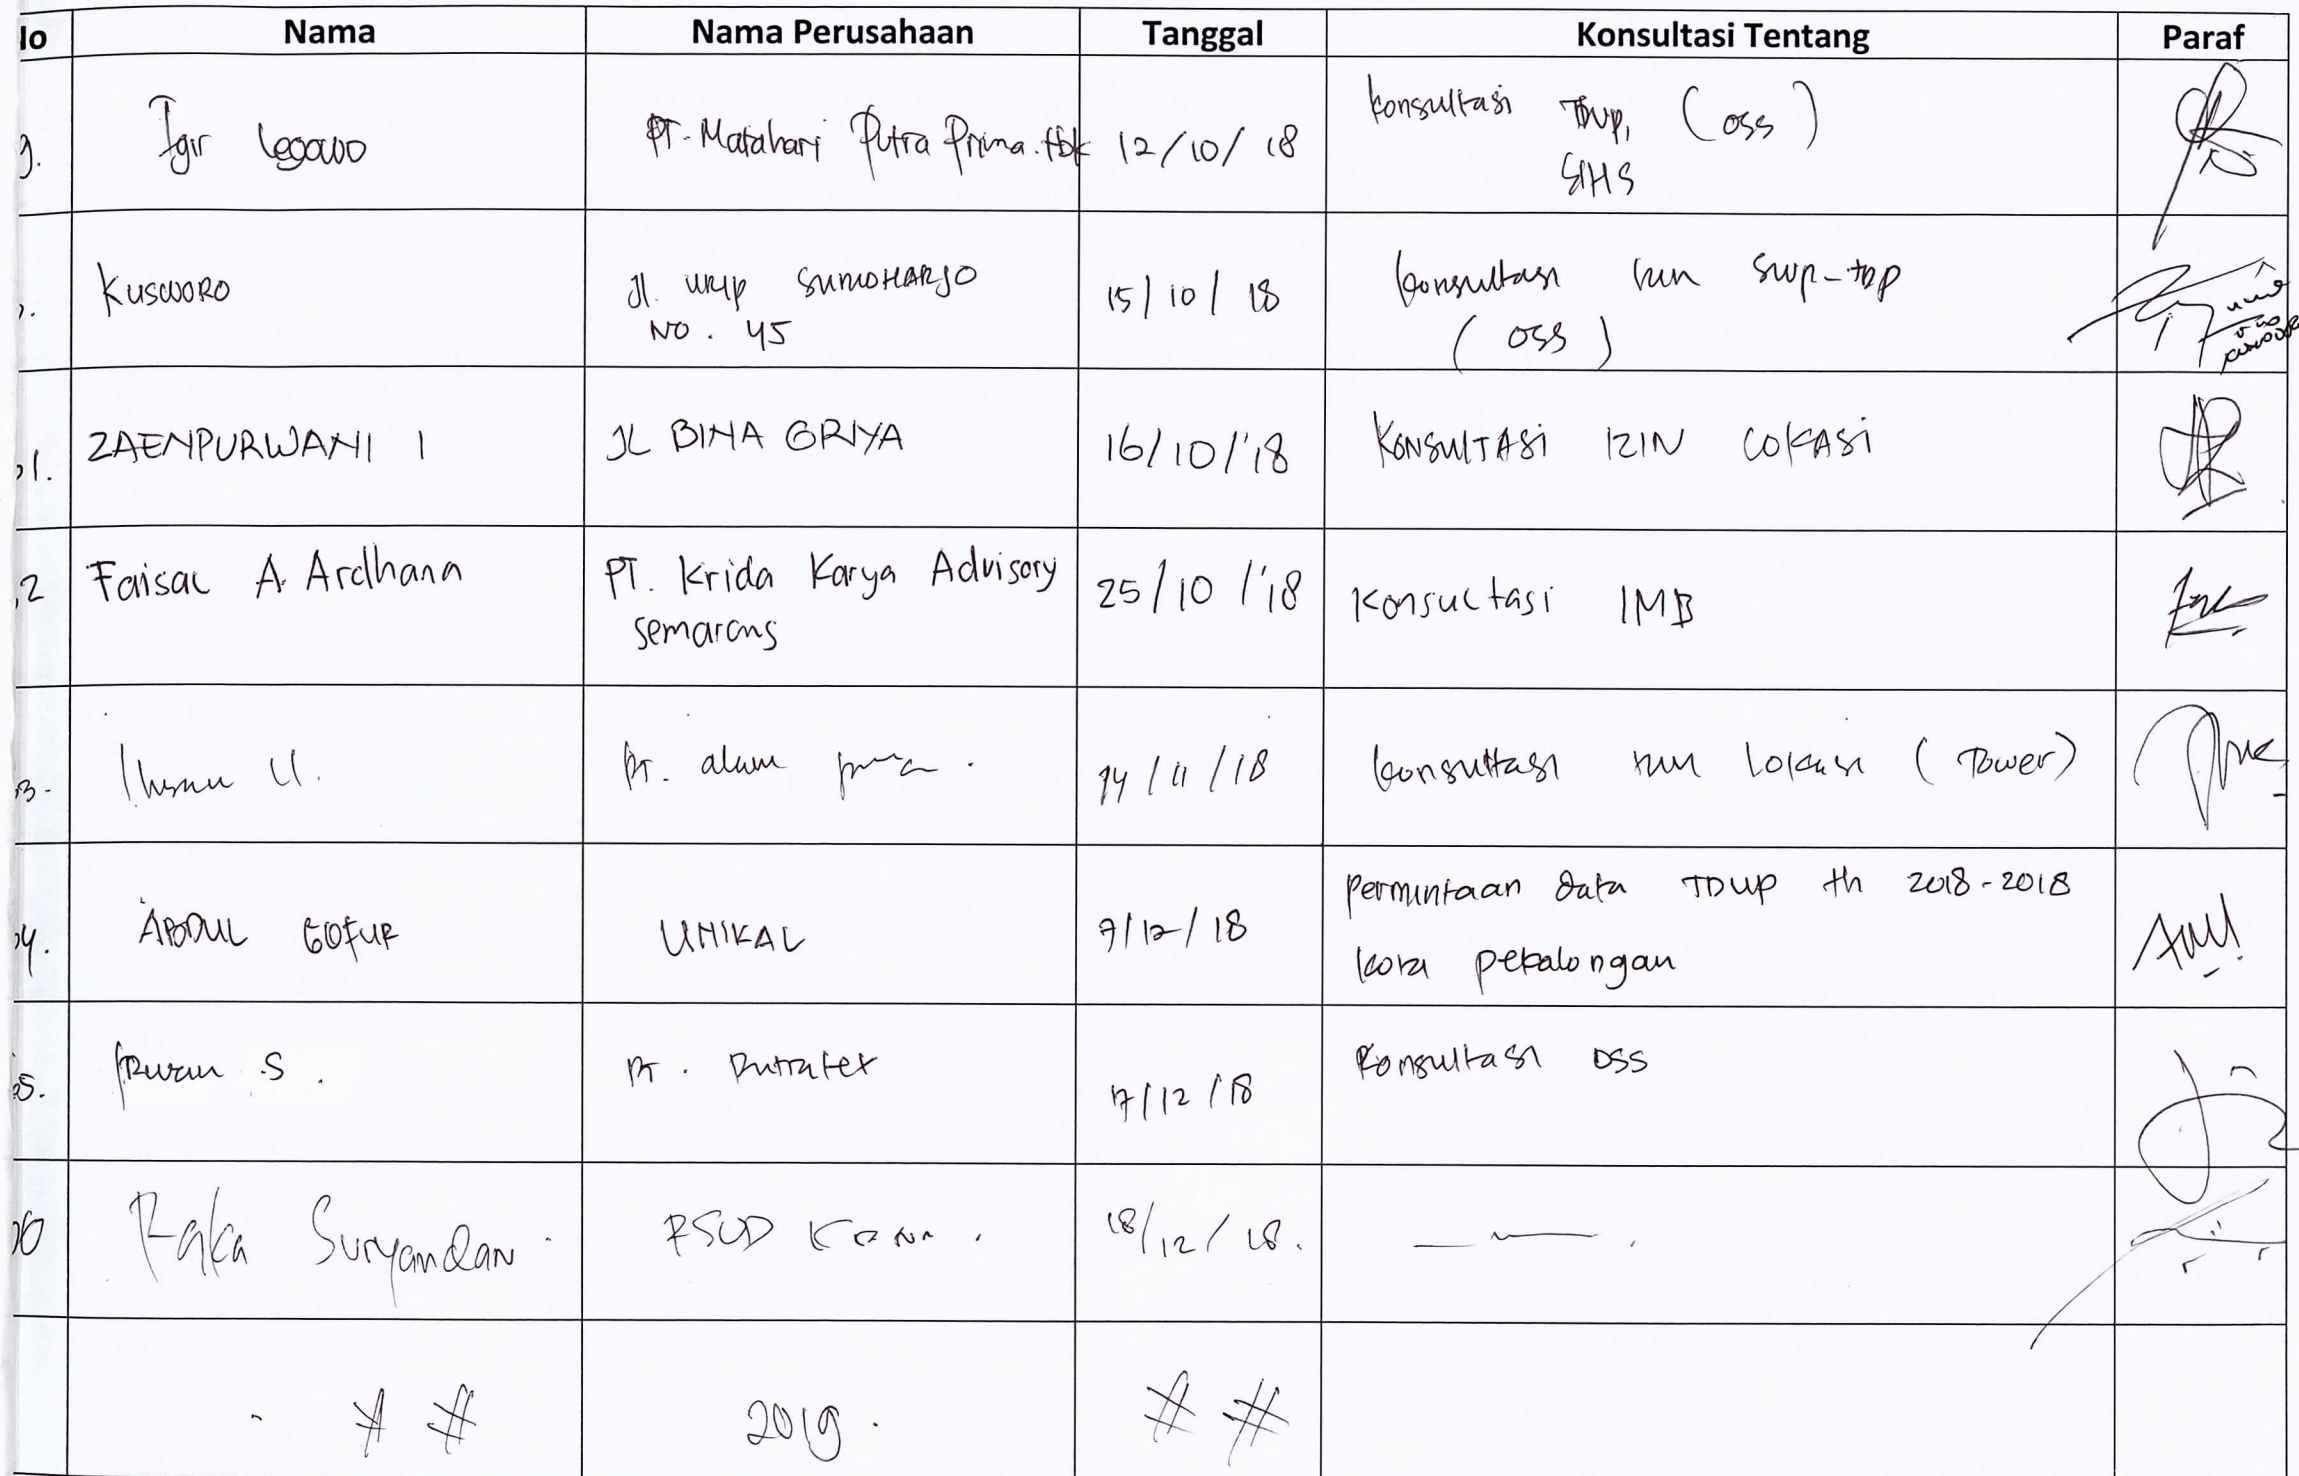 No Nama Nama Perusahaan Tanggal Konsultasi Tentang Paraf
9. Igir Legowo PT. Matahari Putra Prima. tbk 12/10/18 konsultasi TDUP, (OSS)
SIHS
KUSWORO Jl. URIP SUMOHARJO 15/10/18 konsultasi izin SIUP-TDP
NO. 45 (OSS)
21. ZAENPURWANI I JL BINA GRIYA 16/10/'18 KONSULTASI IZIN LOKASI
2 Faisal A. Ardhana PT. Krida Karya Advisory 25/10/'18 Konsultasi IMB
Semarang
3. PT. alam 14/11/18 konsultasi izin Lokasi (Tower)
4. ABDUL GOFUR UNIKAL 7/12/18 permintaan data TDUP th 2018-2018
kota pekalongan
5. Irwan S. PT. Putratex 17/12/18 konsultasi OSS
Raka Suryandan. RSUD 18/12/18.
# # 2019. # #